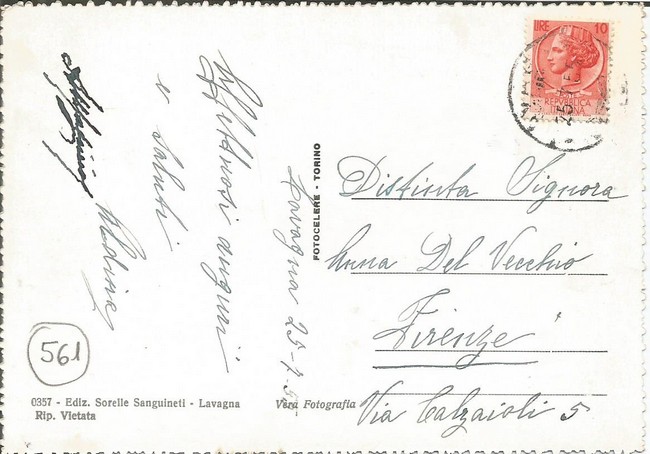 Affettuosi auguri
e saluti
Lavagna 25-7-5
LIRE 10
POSTE
REPUBBLICA
ITALIANA
Distinta Signora
Anna Del Vecchio
Firenze
Via Calzaioli 5
FOTOCELERE - TORINO
561
0357 - Ediz. Sorelle Sanguineti - Lavagna
Rip. Vietata
Vera Fotografia